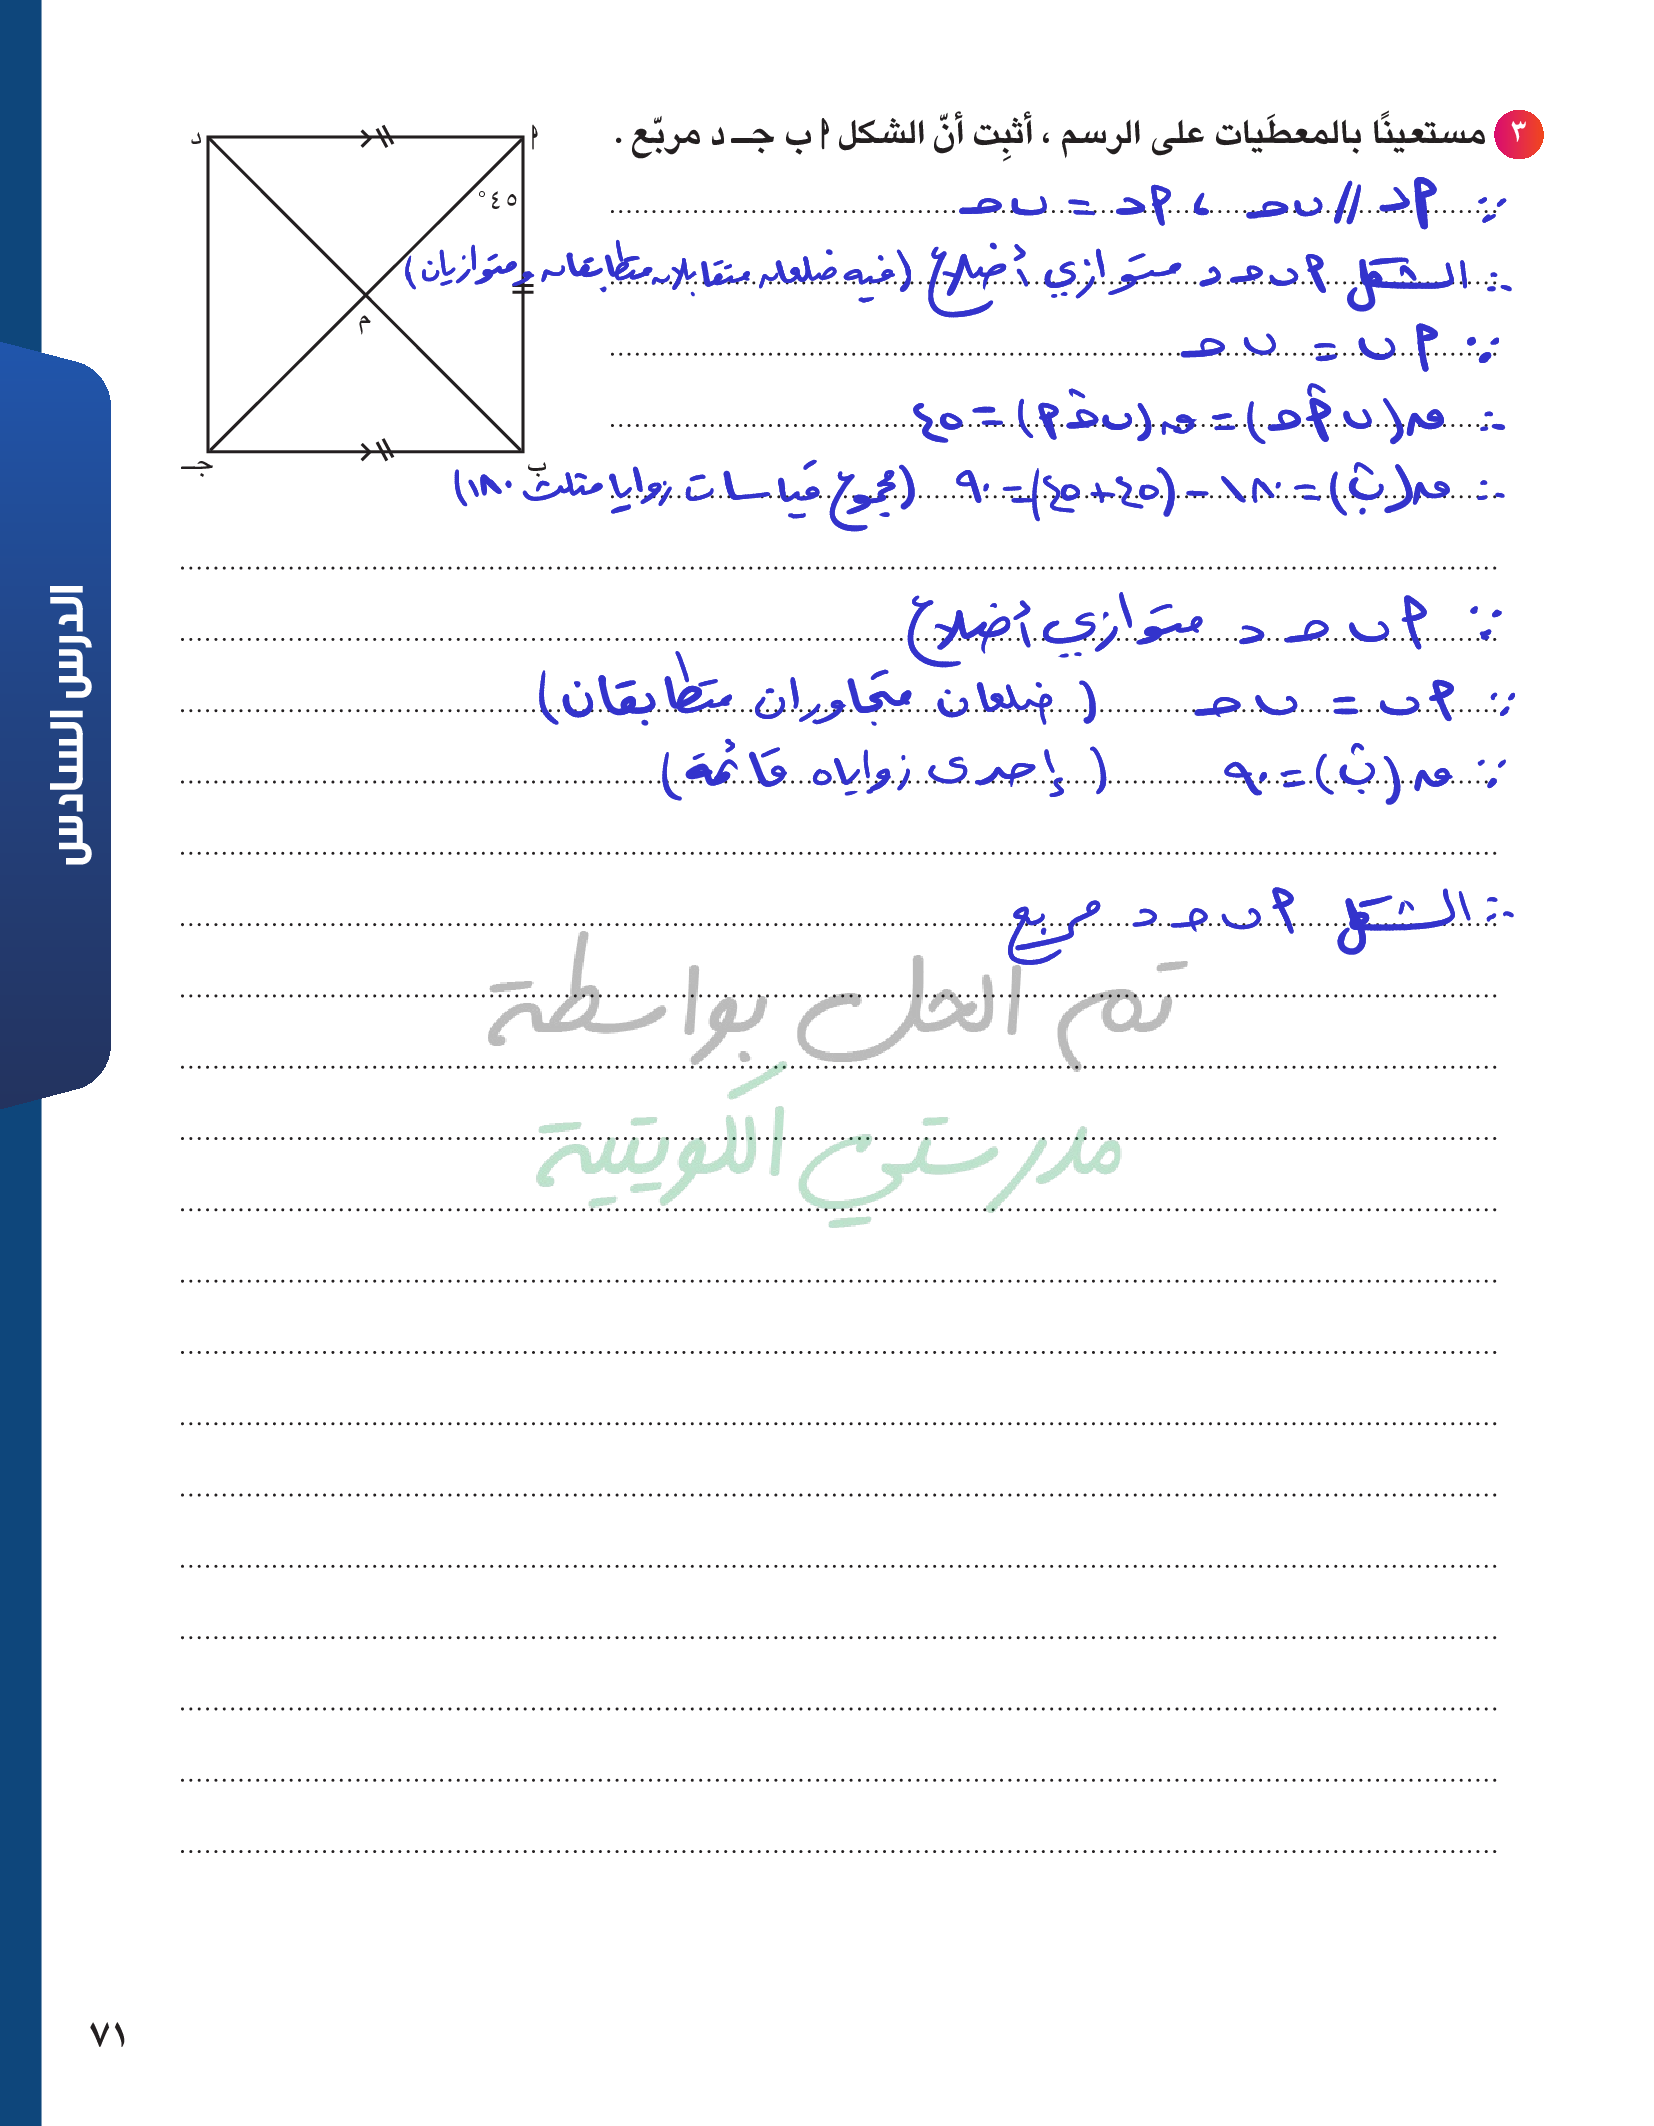 ٣ مستعينًا بالمعطَيات على الرسم ، أثبِت أنّ الشكل أ ب جـ د مربّع .
د
أ
٤٥°
م
جـ
ب
∵ أد // ب حـ ، أد = ب حـ
∴ الشكل أ ب حـ د متوازي أضلاع (فيه ضلعان متقابلان متطابقان ومتوازيان)
∵ أ ب = ب حـ
∴ ق(ب أ̂ حـ) = ق(ب حـ̂ أ) = ٤٥
∴ ق(ب̂) = ١٨٠ − (٤٥+٤٥) = ٩٠ (مجموع قياسات زوايا مثلث ١٨٠)
∵ أ ب حـ د متوازي أضلاع
∵ أ ب = ب حـ ( ضلعان متجاوران متطابقان)
∵ ق(ب̂) = ٩٠ ( إحدى زواياه قائمة)
∴ الشكل أ ب حـ د مربع
تم الحل بواسطة
مدرستي الكويتية
الدرس السادس
٧١